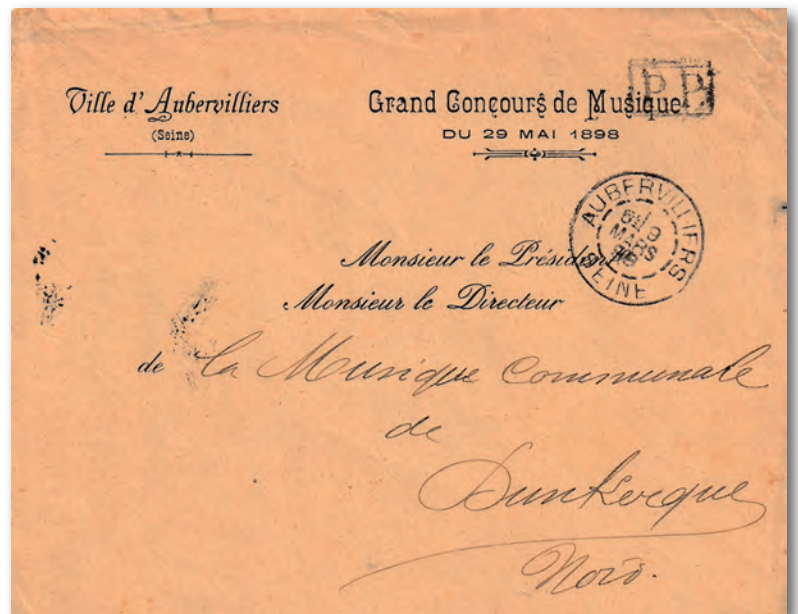 Ville d'Aubervilliers
(Seine)
Grand Concours de Musique
DU 29 MAI 1898
PP
AUBERVILLIERS
MARS
SEINE
Monsieur le Président
Monsieur le Directeur
de la Musique Communale
de
Dunkerque
Nord.